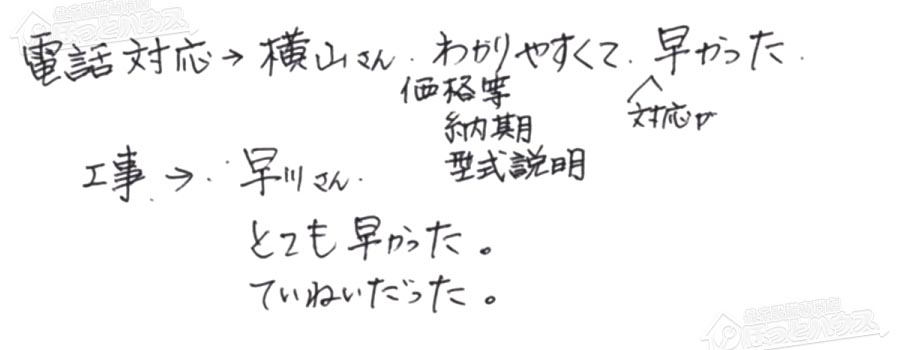 電話対応→横山さん.わかりやすくて.早かった.
価格等
対応が
納期
型式説明
工事→.早川さん.
とても早かった。
ていねいだった。
ほっとハウス
ほっとハウス